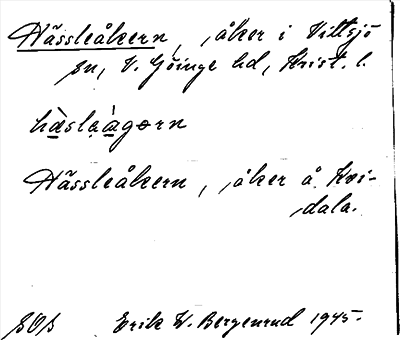 Hässleåkern, åker i Vittsjö
sn, V. Göinge hd, Krist. l.
hàsleàgørn
Hässleåkern, åker å Kvi-
dala.
SOS Erik W. Bergenrud 1945.